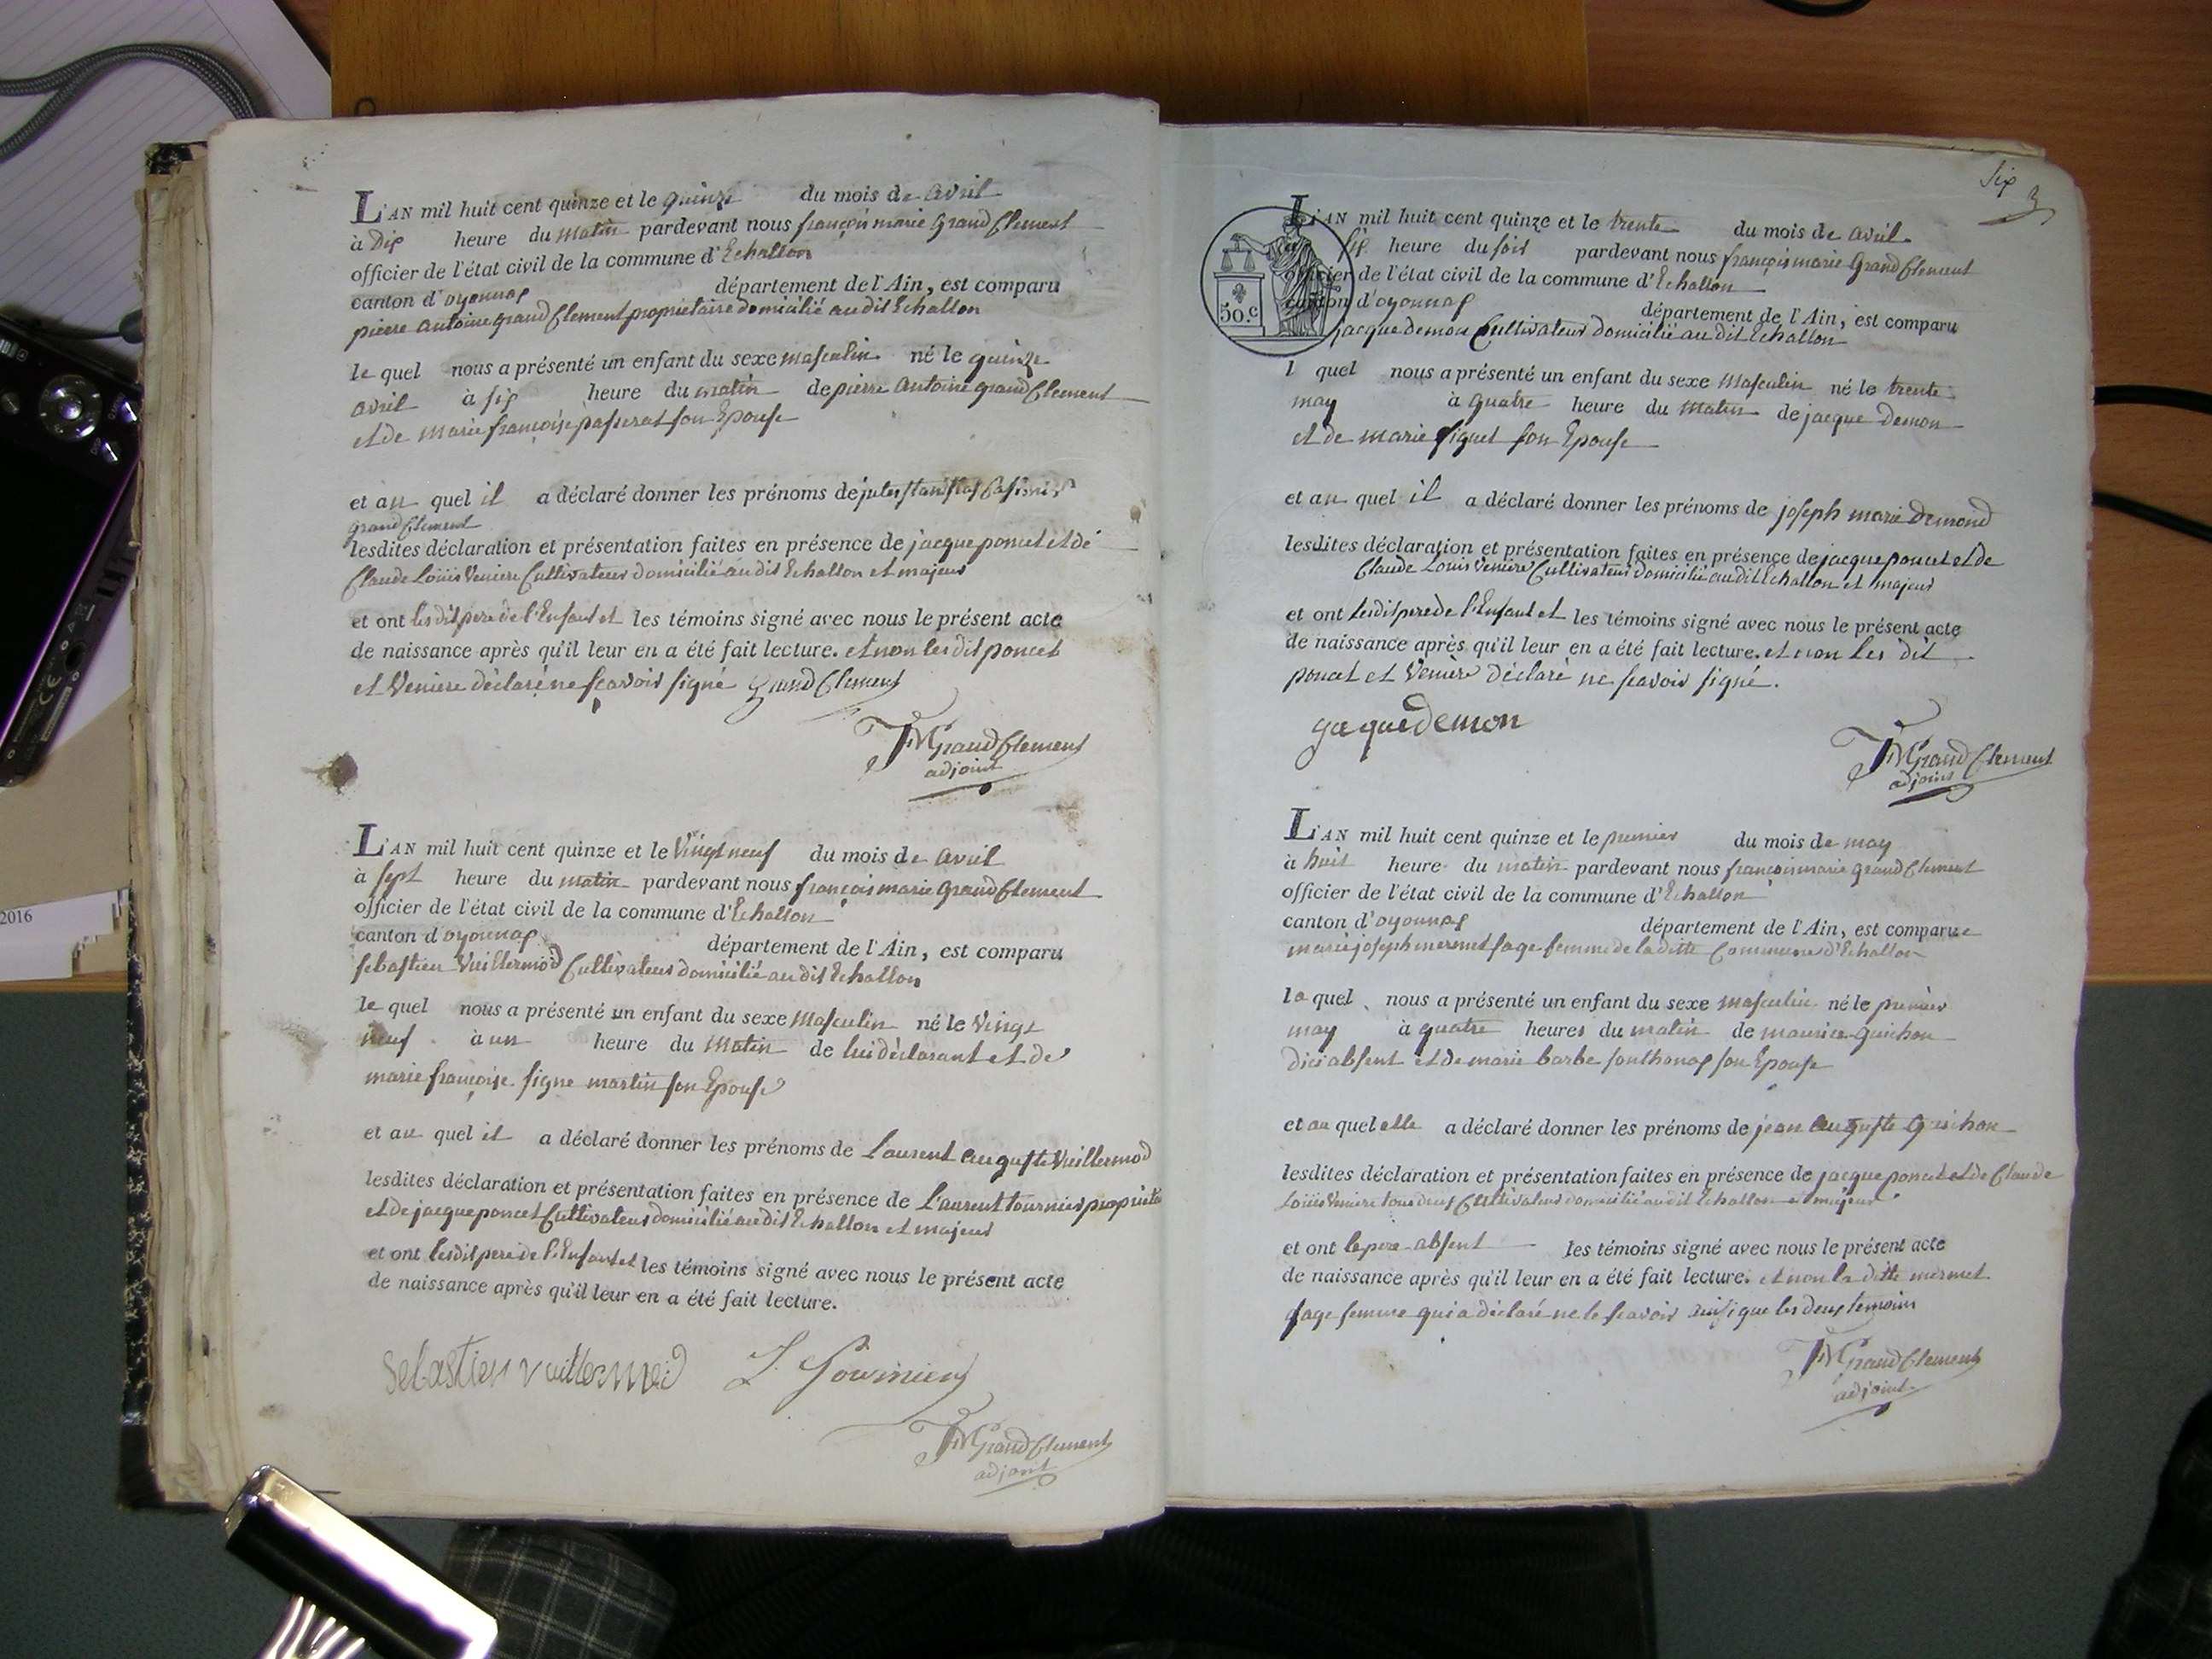 L'AN mil huit cent quinze et le quinze du mois de avril
à Dix heure du matin pardevant nous françois marie Grand Clement
officier de l'état civil de la commune d'Echallon
canton d'oyonnax département de l'Ain, est comparu
pierre Antoine grand Clement propriétaire domicilié au dit Echallon
le quel nous a présenté un enfant du sexe masculin né le quinze
avril à six heure du matin de pierre Antoine grand Clement
et de marie françoise passerat son Epouse
et au quel il a déclaré donner les prénoms de jules stanislas Casimir
grand Clement
lesdites déclaration et présentation faites en présence de jacque poncet et de
Claude Louis Veniere Cultivateur domicilié au dit Echallon et majeur
et ont lesdit pere de l'Enfant et les témoins signé avec nous le présent acte
de naissance après qu'il leur en a été fait lecture. et non les dit poncet
et Veniere déclaré ne scavoir signé Grand Clement
FM Grand Clement
adjoint
L'AN mil huit cent quinze et le Vingt neuf du mois de avril
à sept heure du matin pardevant nous françois marie grand Clement
officier de l'état civil de la commune d'Echallon
canton d'oyonnax département de l'Ain, est comparu
sebastien Vuillermod Cultivateur domicilié au dit Echallon
le quel nous a présenté un enfant du sexe masculin né le Vingt
neuf à un heure du matin de lui déclarant et de
marie françoise signe martin son Epouse
et au quel il a déclaré donner les prénoms de Laurent auguste Vuillermod
lesdites déclaration et présentation faites en présence de Laurent tournier
et de jacque poncet Cultivateur domicilié au dit Echallon et majeur
et ont lesdit pere de l'Enfant et les témoins signé avec nous le présent acte
de naissance après qu'il leur en a été fait lecture.
Sebastien vuillermod L. Tournier
FM Grand Clement
adjoint
Six
3
L'AN mil huit cent quinze et le trente du mois de avril
à six heure du soir pardevant nous françois marie Grand Clement
officier de l'état civil de la commune d'Echallon
canton d'oyonnax département de l'Ain, est comparu
50.c
jacque demon Cultivateur domicilié au dit Echallon
l quel nous a présenté un enfant du sexe masculin né le trente
may à quatre heure du matin de jacque Demon
et de marie signet son Epouse
et au quel il a déclaré donner les prénoms de joseph marie Demond
lesdites déclaration et présentation faites en présence de jacque poncet et de
Claude Louis Veniere Cultivateur domicilié au dit Echallon et majeur
et ont lesdit pere de l'Enfant et les témoins signé avec nous le présent acte
de naissance après qu'il leur en a été fait lecture. et non les dit
poncet et Veniere déclaré ne scavoir signé.
gaque demon
FM Grand Clement
adjoint
L'AN mil huit cent quinze et le premier du mois de may
à huit heure du matin pardevant nous françois marie grand Clement
officier de l'état civil de la commune d'Echallon
canton d'oyonnax département de l'Ain, est comparue
marie joseph mermet sage femme de la ditte Commune d'Echallon
la quel nous a présenté un enfant du sexe masculin né le premier
may à quatre heures du matin de maurice Guichon
absent et de marie barbe sonthonax son Epouse
et au quel elle a déclaré donner les prénoms de jean auguste Guichon
lesdites déclaration et présentation faites en présence de jacque poncet et de Claude
Louis Veniere tous deux Cultivateur domicilié au dit Echallon et majeur
et ont le pere absent les témoins signé avec nous le présent acte
de naissance après qu'il leur en a été fait lecture. et non la ditte mermet
sage femme qui a déclaré ne le scavoir ainsi que les deux temoins
FM Grand Clement
adjoint
2016